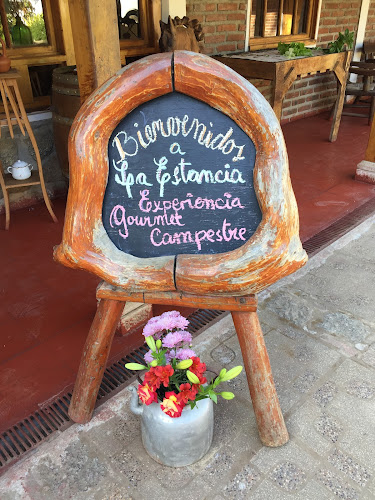 Bienvenidos
a
La Estancia
Experiencia
Gourmet
Campestre